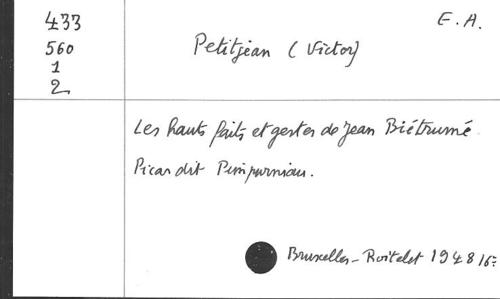 433
560
1
2
E. A.
Petitjean (Victor)
Les hauts faits et gestes de Jean Biétrumé
Picar dit Pimpurniau.
Bruxelles - Roitelet 1948 16=